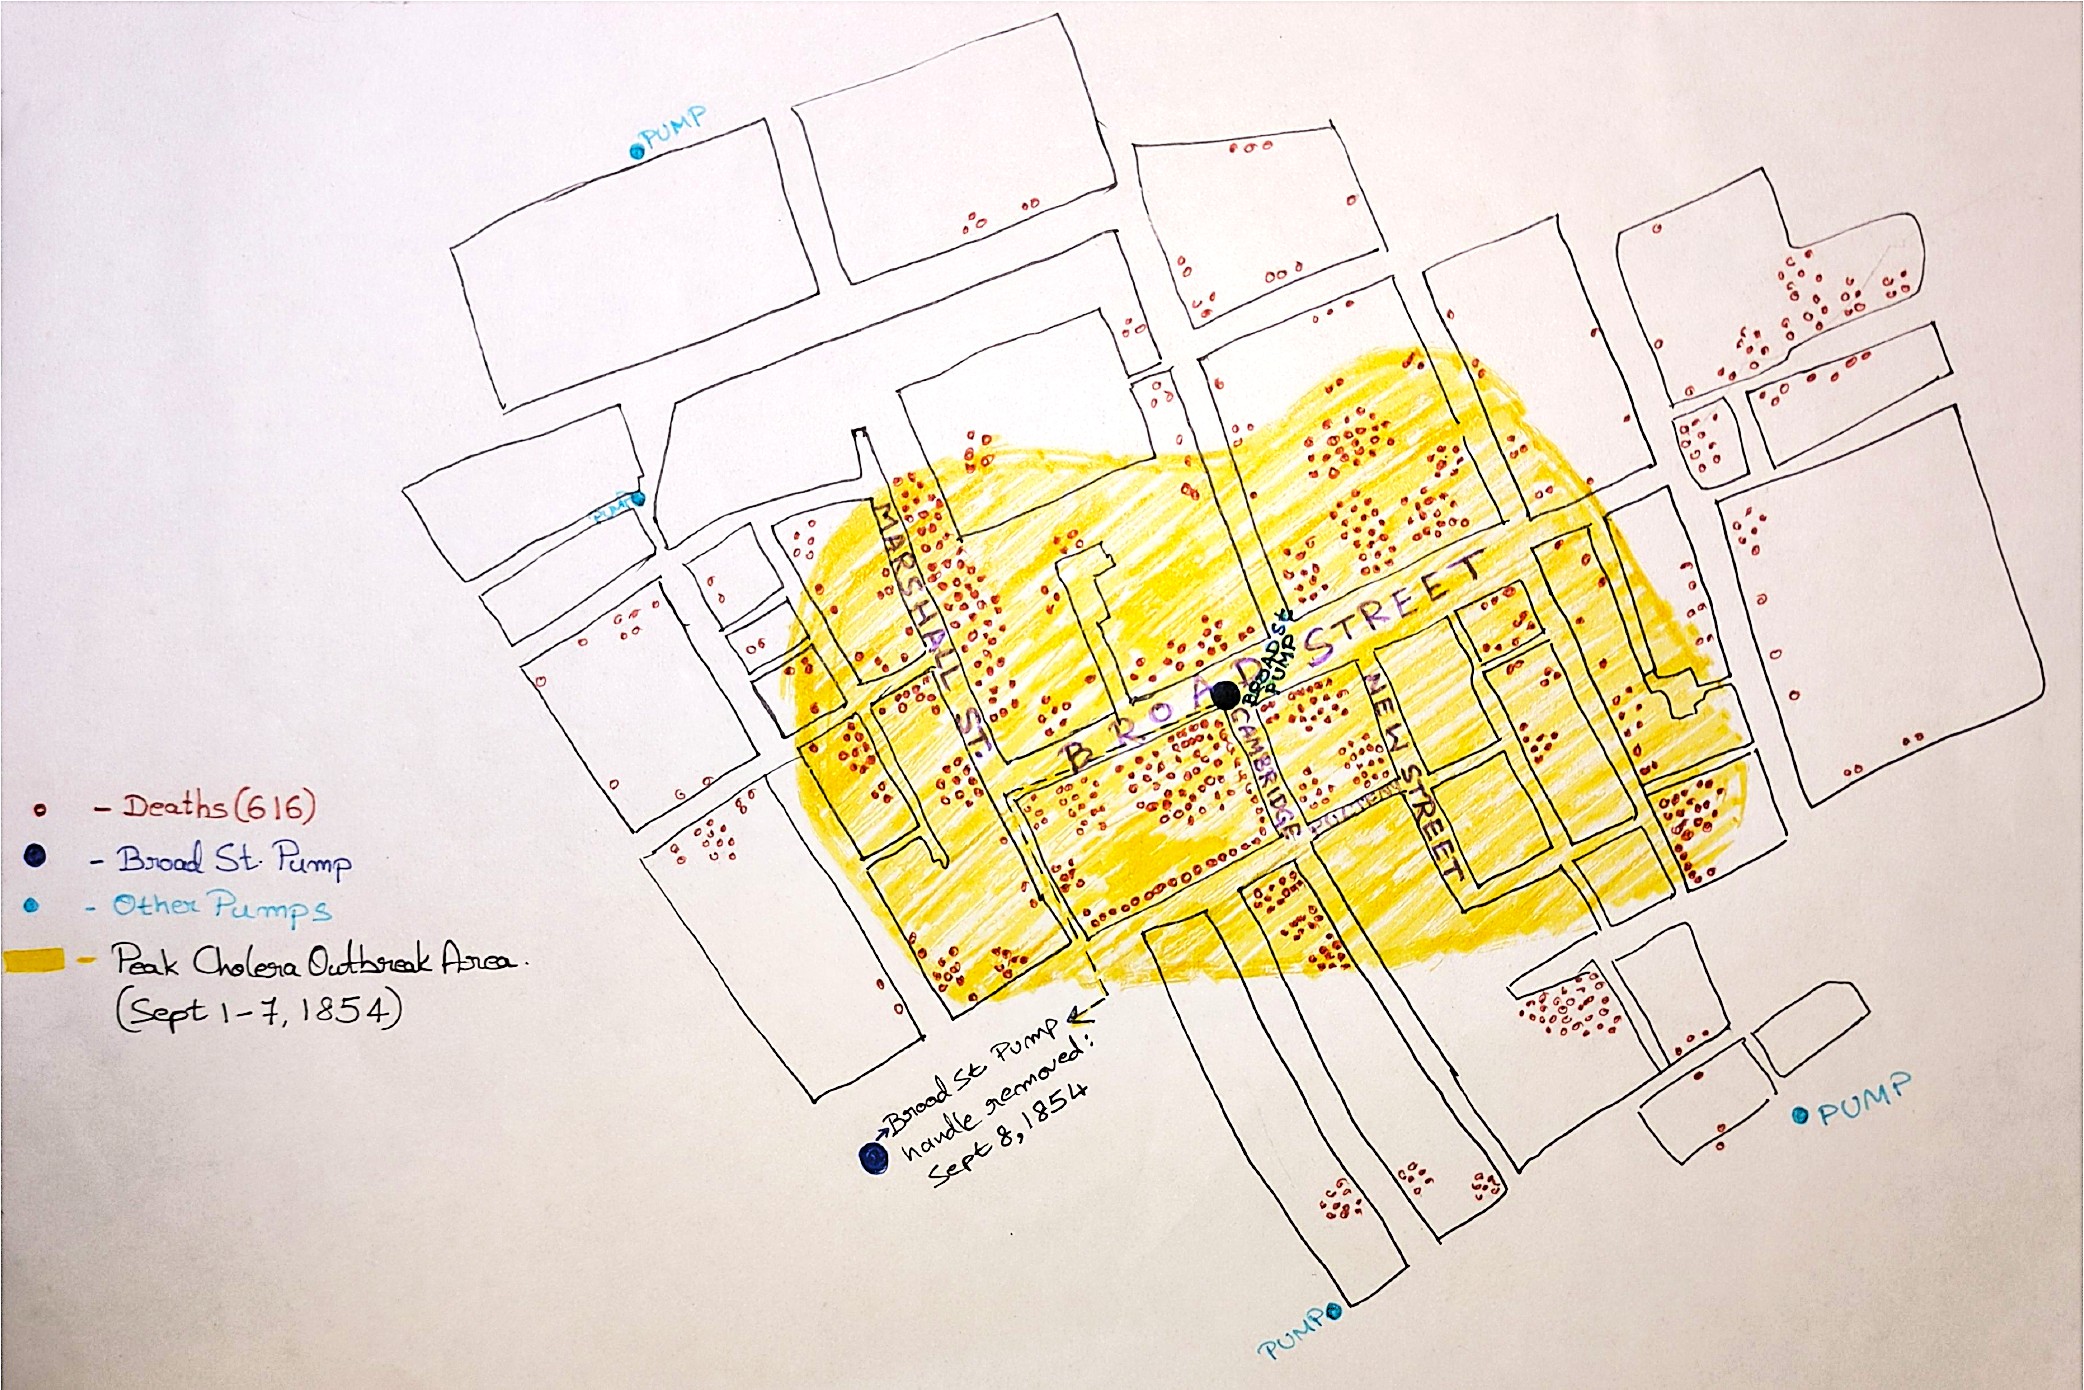 PUMP
PUMP
MARSHALL ST.
BROAD STREET
BROAD St
PUMP
CAMBRIDGE
NEW STREET
- Deaths (616)
- Broad St. Pump
- Other Pumps
- Peak Cholera Outbreak Area.
(Sept 1-7, 1854)
Broad St Pump
handle removed:
Sept 8, 1854
PUMP
PUMP